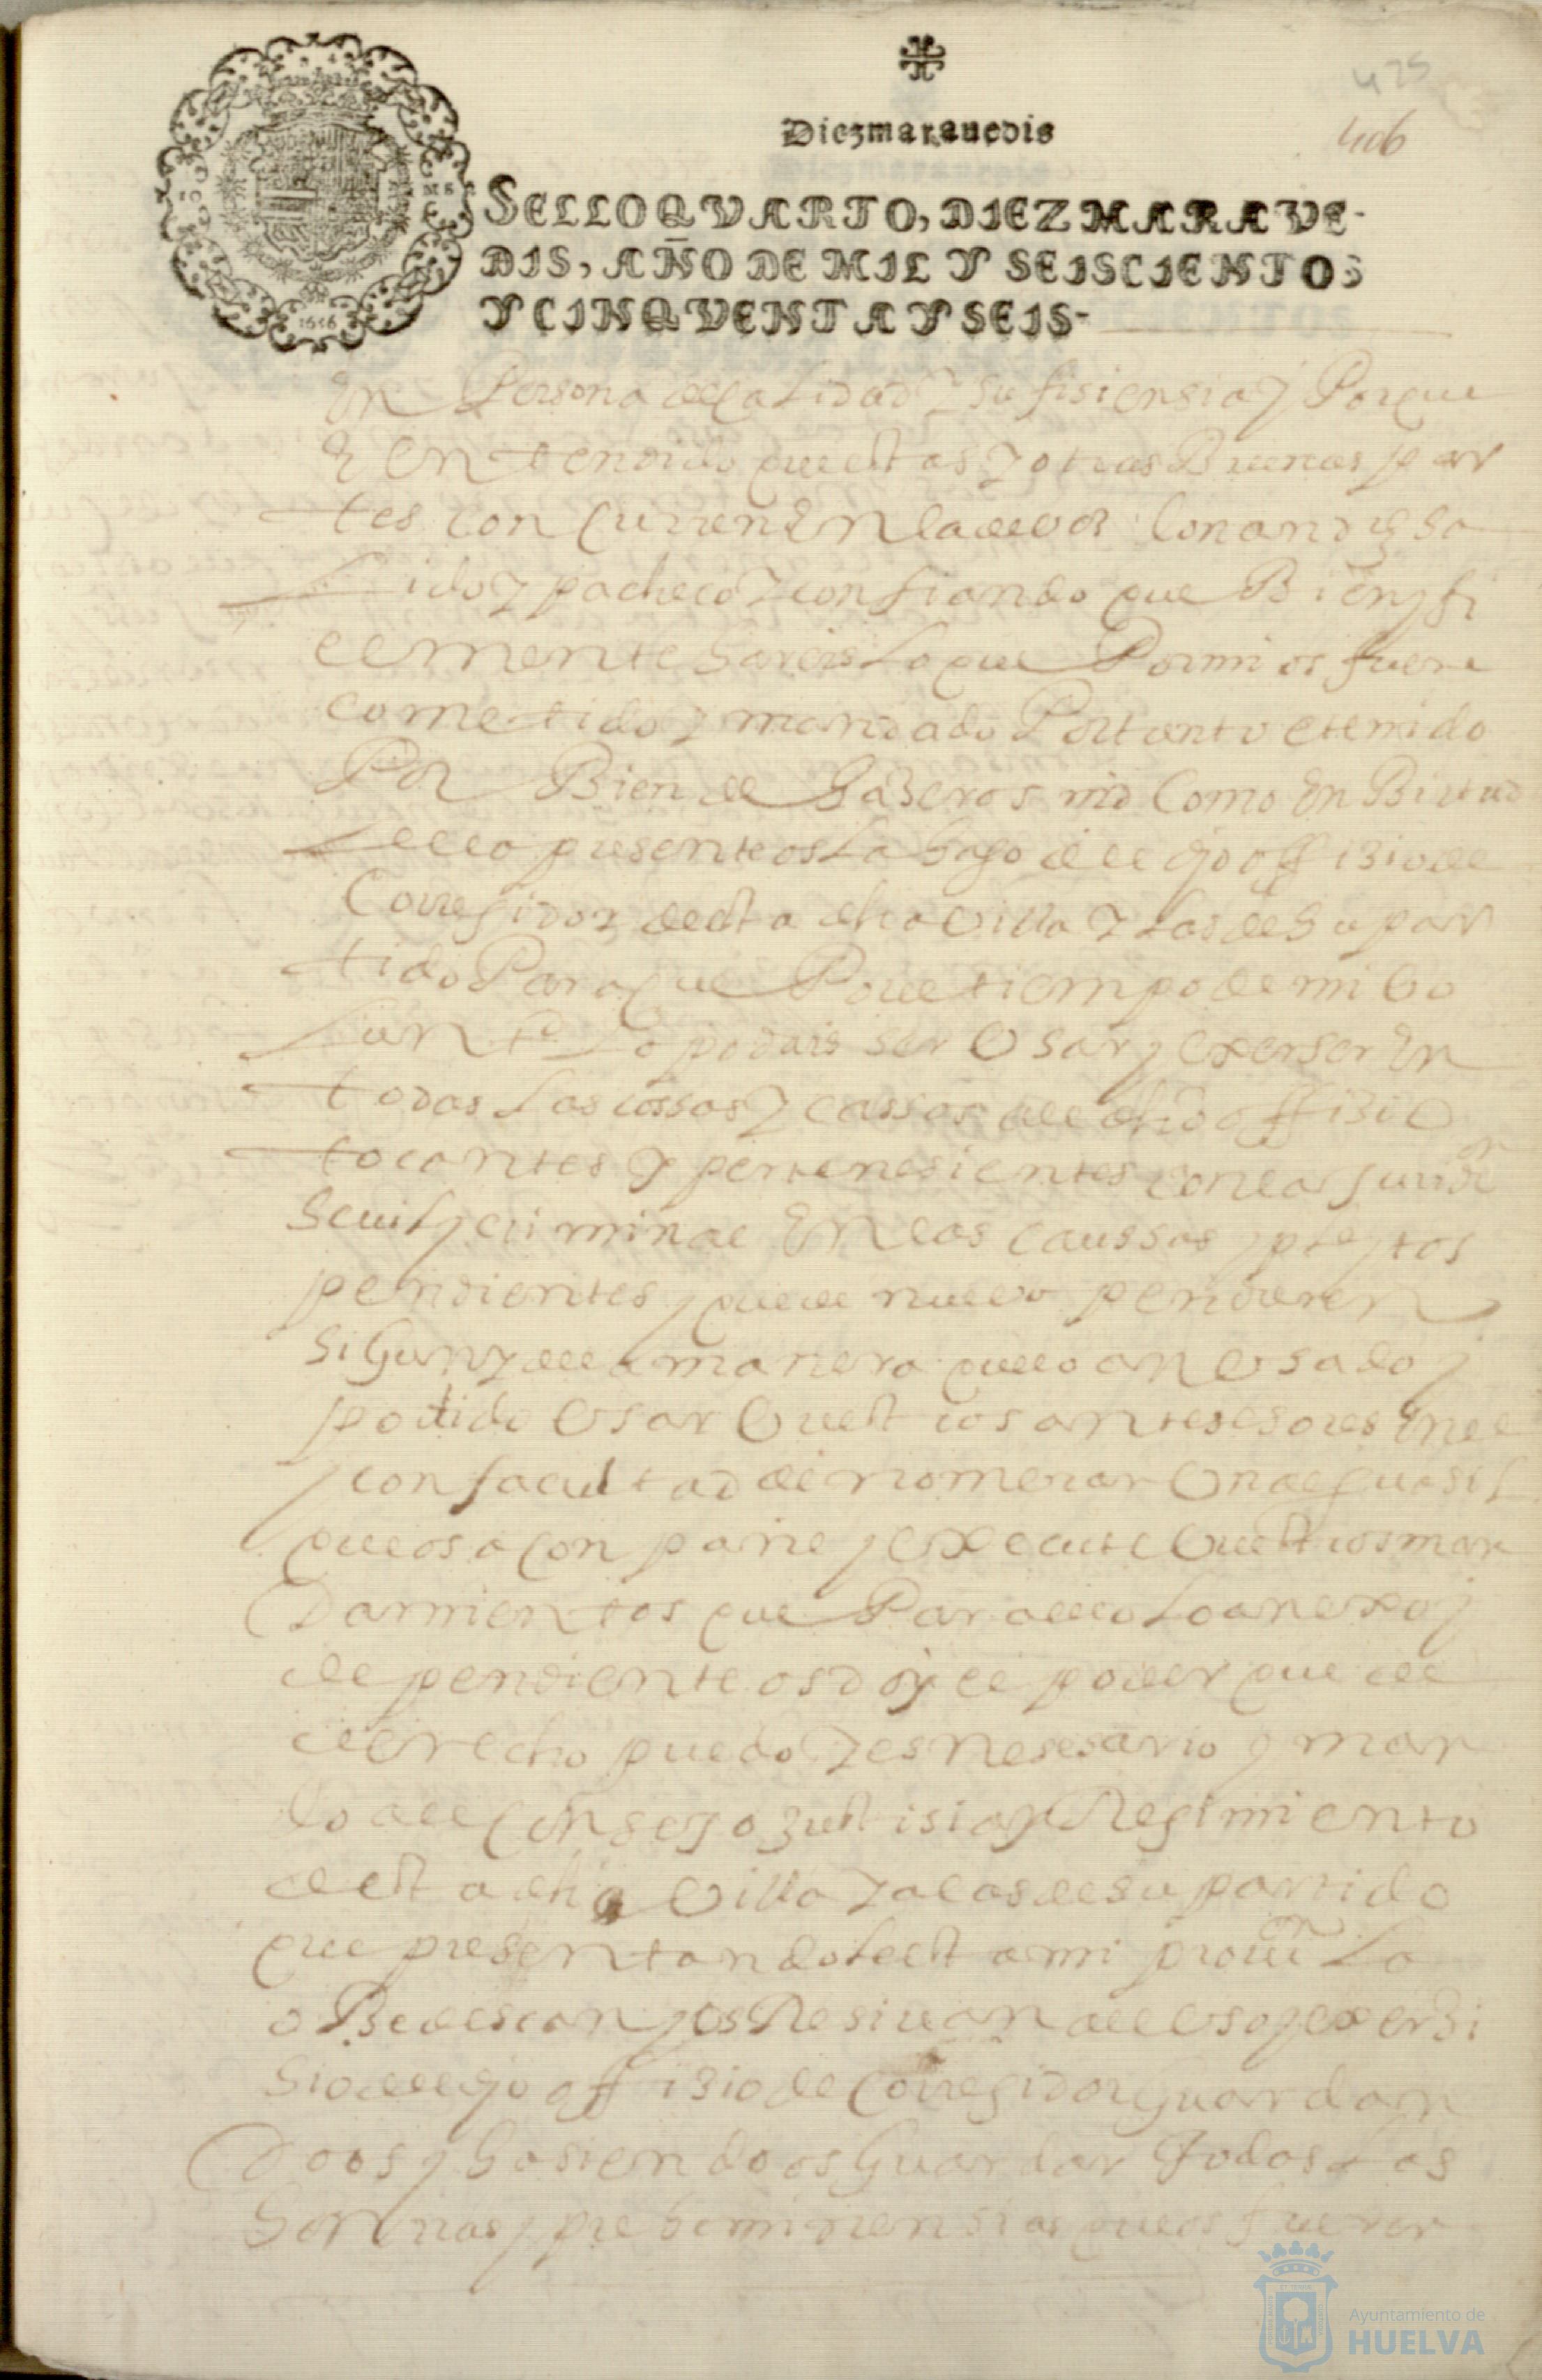 425
406
Diezmarauedis
SELLO QVARTO, DIEZ MARAVE-
DIS, AÑO DE MIL Y SEISCIENTOS
Y CINQVENTA Y SEIS-
1656
En Persona de calidad y sufisiensia y Porque
e entendido que estas y otras Buenas par
tes concurren En la de vos Don
y pacheco y confiando que Bien y fi
elmente hareis lo que Por mi os fuere
cometido y mandado Por tanto e tenido
Por Bien de hazeros mrd Como En Birtud
de la presente os la hago del dho offisio de
Corregidor desta dha Villa y las de su par
tido Para que Por el tiempo de mi bo
luntd lo podais ser Usar y exerser En
todas las cossas y cassos al dho offisio
tocantes y pertenesientes con la Juridon
sevil y criminal En las caussas y pleytos
pendientes y que de nuevo pendieren
sigun y de la manera que lo an Usado y
podido Usar Vuestros antesesores En el
y con facultad de nombrar Un alguasil
que os aconpañe y execute Vuestros man
Damientos que Para ello lo anexo y
dependiente os doy el poder que de
derecho puedo y es nesesario y man
do al Consejo Justisia y Regimiento
desta dha Villa y a las de su partido
que presentandoles esta mi provon la
oBedescan y os Resivan al Uso y exersi
sio del dho offisio de Corregidor Guardan
Doos y hasiendoos Guardar Todas las
honrras y preheminensias que os fueren
Ayuntamiento de
HUELVA